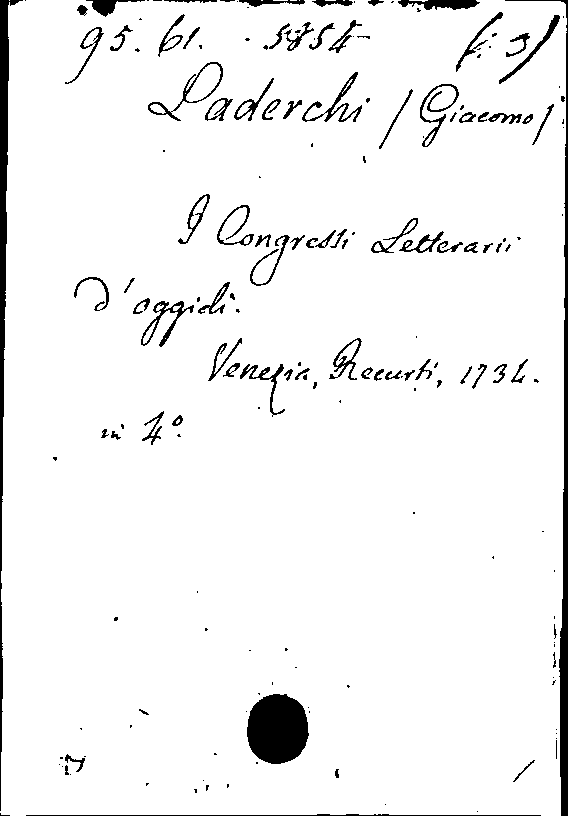 95. 61. · 5854 (i: 3)
Laderchi / Giacomo /
I Congressi Letterarii
d'oggidì.
Venezia, Recurti, 1734.
in 4º.